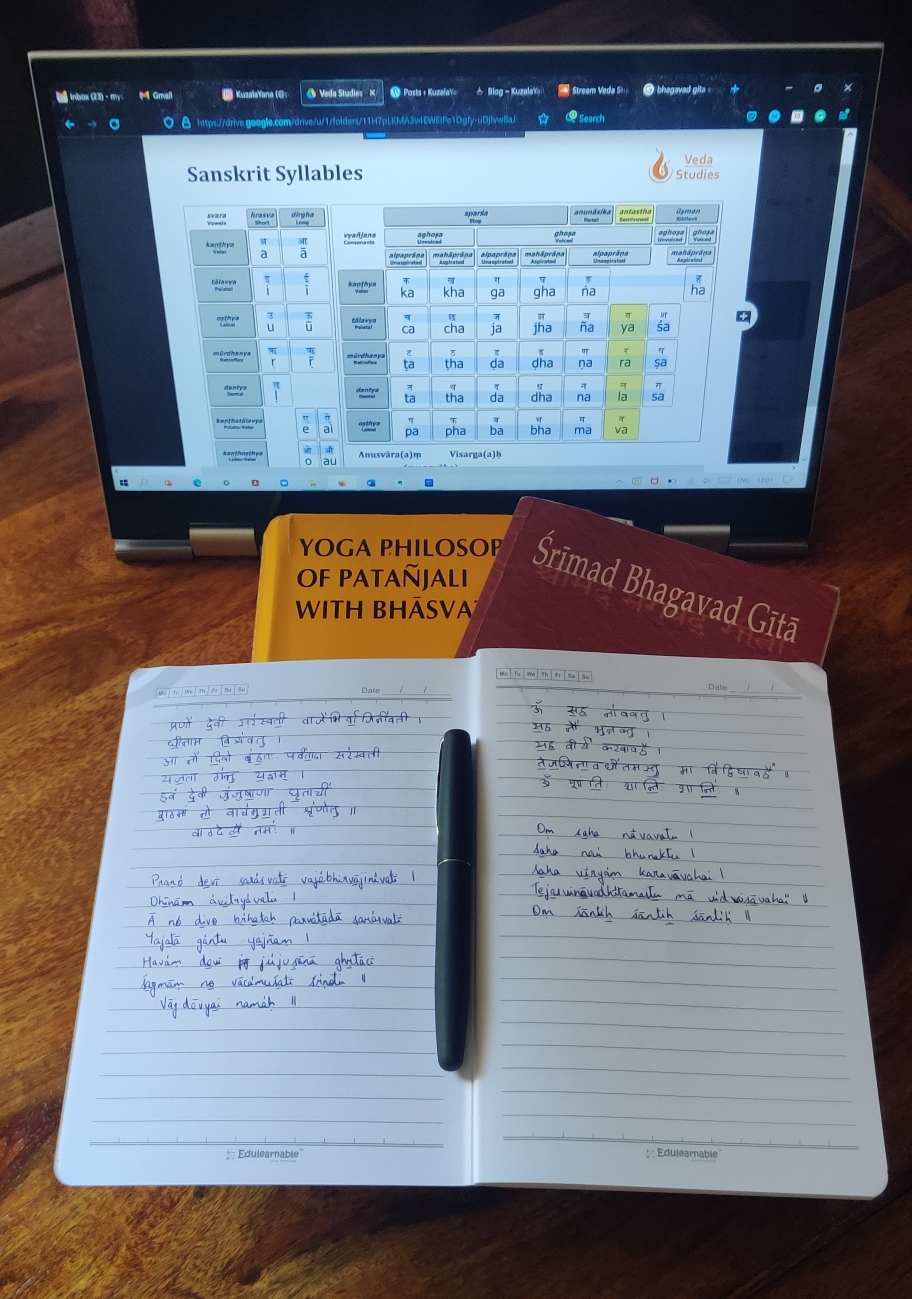 Inbox (23) - my
Gmail
KuzalaYana (@
Veda Studies -
Posts ‹ KuzalaYa
Blog – KuzalaYa
Stream Veda St
bhagavad gita
https://drive.google.com/drive/u/1/folders/
Search
Sanskrit Syllables
Veda
Studies
svara
Vowels
hrasva
Short
dīrgha
Long
kaṇṭhya
Velar
अ आ
a ā
tālavya
Palatal
इ ई
i ī
oṣṭhya
Labial
उ ऊ
u ū
mūrdhanya
Retroflex
ऋ ॠ
ṛ ṝ
dantya
Dental
ऌ
ḷ
kaṇṭhatālavya
Palato-Velar
ए ऐ
e ai
kaṇṭhoṣṭhya
Labio-Velar
ओ औ
o au
vyañjana
Consonants
sparśa
Stop
anunāsika
Nasal
antastha
Semivowel
ūṣman
Sibilant
aghoṣa
Unvoiced
ghoṣa
Voiced
aghoṣa
Unvoiced
ghoṣa
Voiced
alpaprāṇa
Unaspirated
mahāprāṇa
Aspirated
alpaprāṇa
Unaspirated
mahāprāṇa
Aspirated
alpaprāṇa
Unaspirated
mahāprāṇa
Aspirated
kaṇṭhya
Velar
क ख ग घ ङ ह
ka kha ga gha ṅa ha
tālavya
Palatal
च छ ज झ ञ य श
ca cha ja jha ña ya śa
mūrdhanya
Retroflex
ट ठ ड ढ ण र ष
ṭa ṭha ḍa ḍha ṇa ra ṣa
dantya
Dental
त थ द ध न ल स
ta tha da dha na la sa
oṣṭhya
Labial
प फ ब भ म व
pa pha ba bha ma va
Anusvāra(a)ṃ Visarga(a)ḥ
ENG 13:01
YOGA PHILOSOP
OF PATAÑJALI
WITH BHĀSVA
Śrīmad Bhagavad Gītā
Mo Tu We Th Fr Sa Su
Date / /
प्रणो देवी सरस्वती वाजेभिर्वाजिनीवती ।
धीनाम वित्र्यवतु ।
आ नो दिवो बृहतः पर्वतादा सरस्वती
यजता गंतु यज्ञम् ।
हवं देवी जुजुषाणा घृताची
नो
वाग्देव्यै नमः ॥
Pranō devī sarásvatī vajēbhirvājinīvatī |
Dhīnām avitryávatu |
Ā nō divo bṛhataḥ parvátādā sarásvatī
Yajatā gántu yajñam |
Havám devī jújuṣāṇā ghṛtācī
śagmām no
Vāg dēvyai namáḥ ||
Mo Tu We Th Fr Sa Su
Date / /
ॐ सह नाववतु ।
सह नौ भुनक्तु ।
सह वीर्यं करवावहै ।
तेजस्विनावधीतमस्तु मा विद्विषावहै ॥
ॐ शान्तिः शान्तिः शान्तिः ॥
Om saha nāvavatu |
Saha nau bhunaktu |
Saha vīryam karavāvahai |
Tejasvināvadhītamastu mā vidviṣāvahai ||
Om śāntiḥ śāntiḥ śāntiḥ ||
Edulearnable
Edulearnable